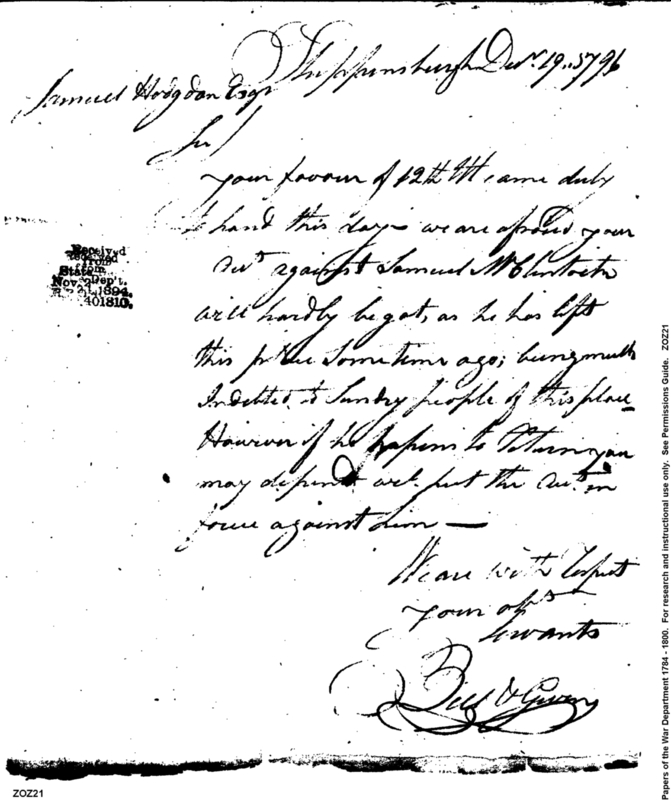 Shippensburgh Decr. 19. 1796
Samuel Hodgdon Esqr
Sir/
your favour of 12th Ult came duly
to hand this day we are afraid your
against Samuel McClintock
will hardly be got, as he has left
this place Sometime ago; being much
Indebted to Sundry people of this place
However if he hapens to Return you
may depend we'l put the in
force against him —
We are with Respect
your obt
Servants
Received
from
State Dep't.
Nov. 1894.
401810.
Papers of the War Department 1784 - 1800. For research and instructional use only. See Permissions Guide. ZOZ21
ZOZ21